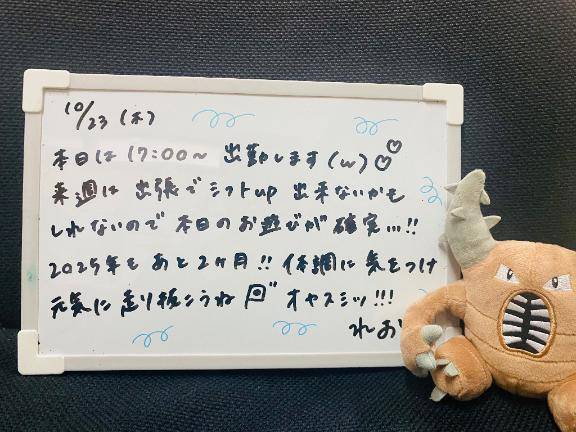 10/23 (木)
本日は 17:00~ 出勤します(w)♡♡
来週は 出張で シフトup 出来ないかも
しれないので 本日のお遊びが 確実…!!
2025年も あと2ヶ月!! 体調に 気をつけ
元気に 走り抜こうね オヤスミッ!!!
れお